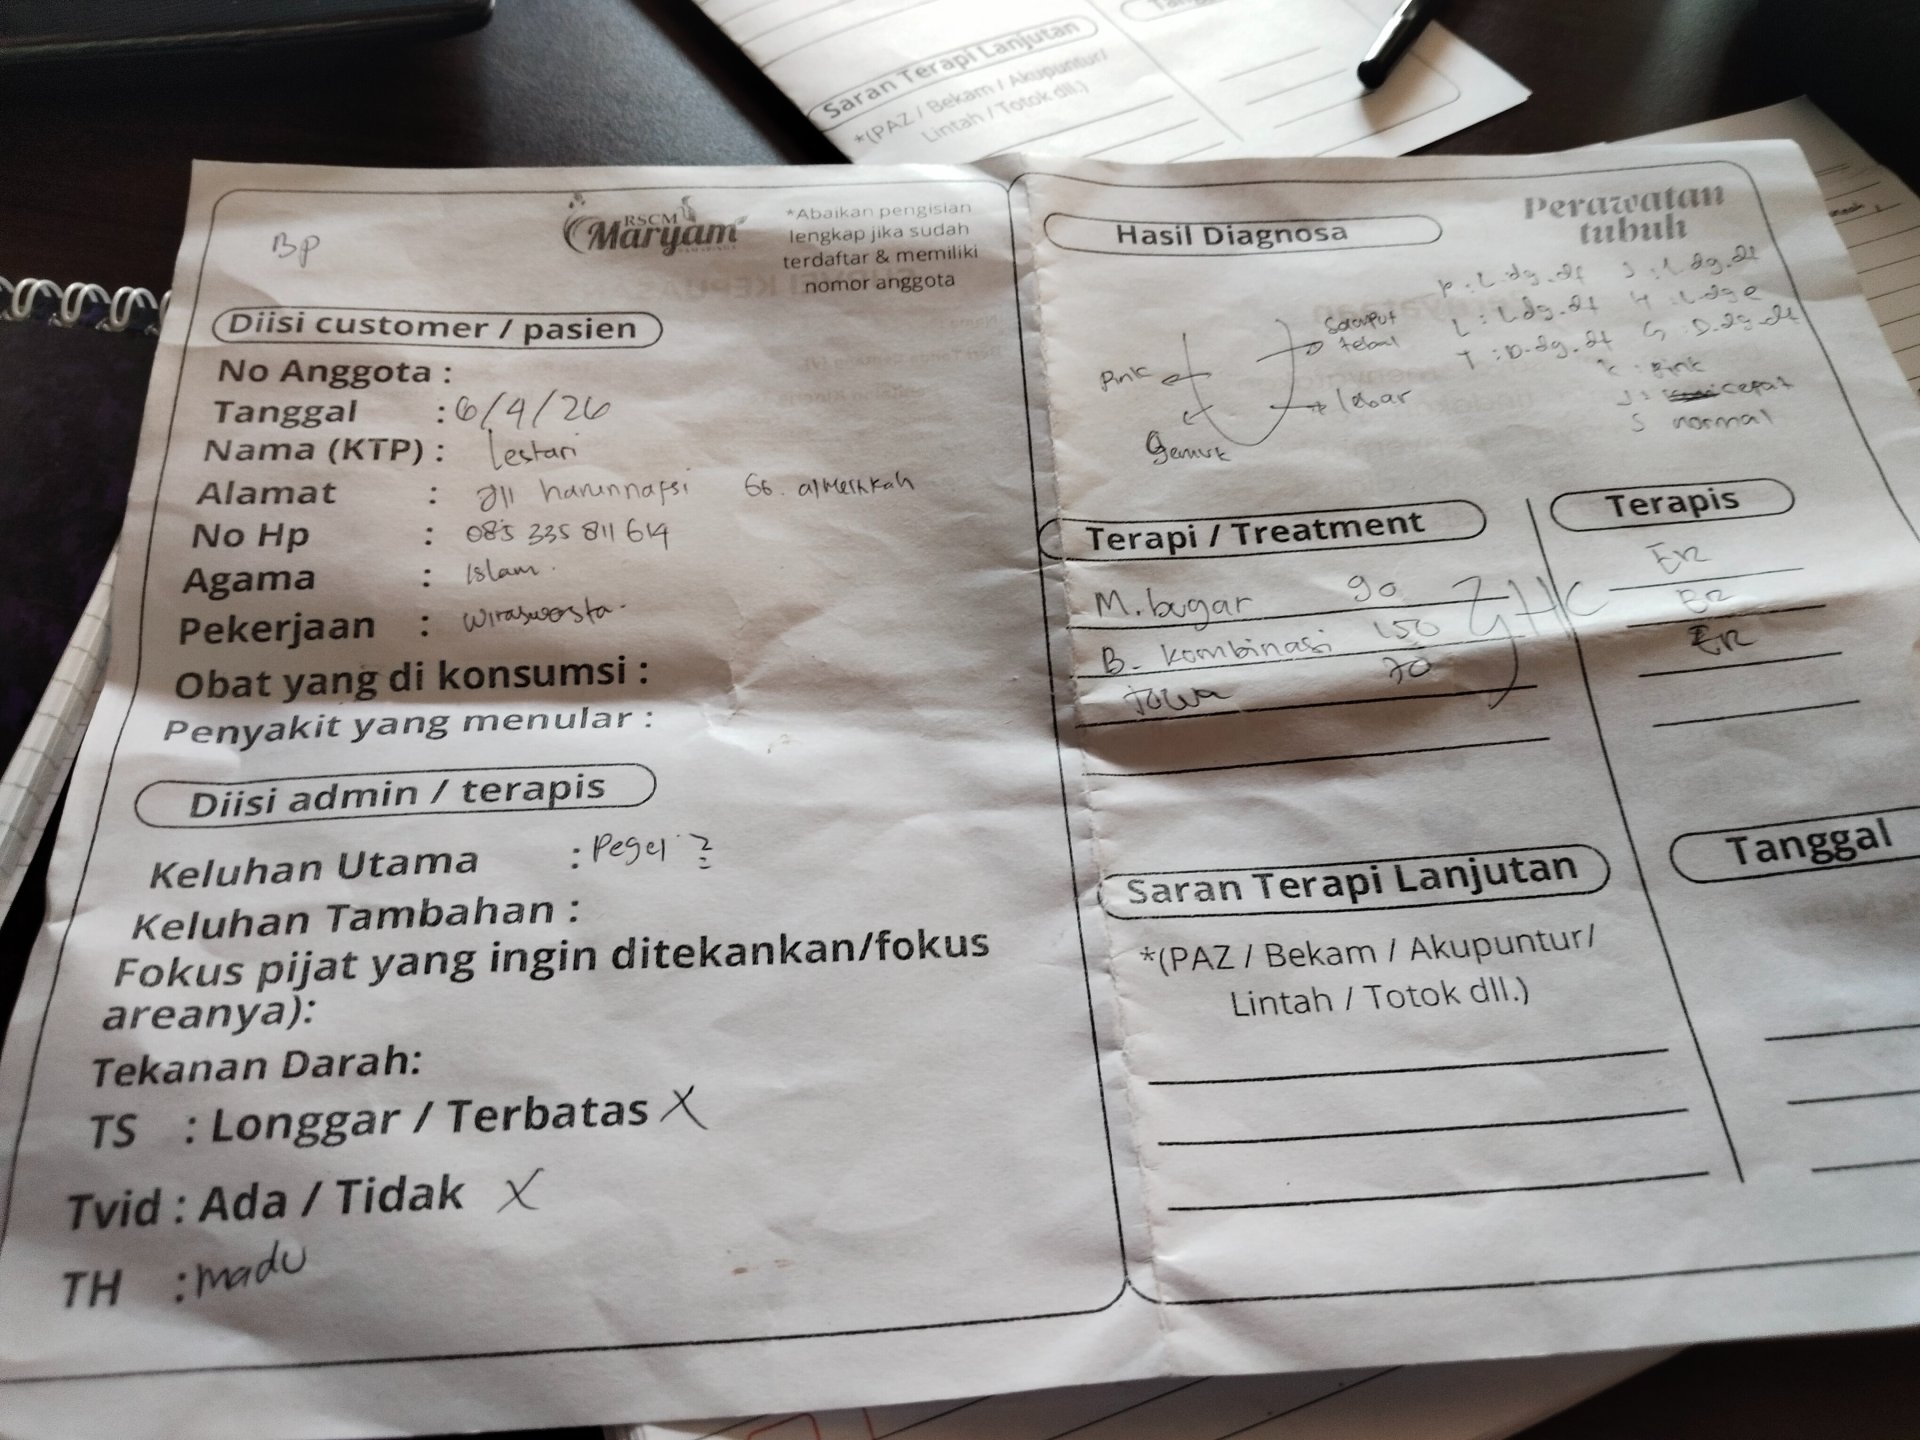 Saran Terapi Lanjutan
*(PAZ / Bekam / Akupuntur/
Lintah / Totok dll.)
Bp
RSCM
Maryam
*Abaikan pengisian
lengkap jika sudah
terdaftar & memiliki
nomor anggota
Diisi customer / pasien
No Anggota :
Tanggal : 6/4/26
Nama (KTP) : Lestari
Alamat : harunnafsi
No Hp : 085 335 811 614
Agama : Islam.
Pekerjaan :
Obat yang di konsumsi :
Penyakit yang menular :
Diisi admin / terapis
Keluhan Utama : Pegel 2
Keluhan Tambahan :
Fokus pijat yang ingin ditekankan/fokus
areanya):
Tekanan Darah:
TS : Longgar / Terbatas X
Tvid : Ada / Tidak X
TH : madu
Perawatan
tubuh
Hasil Diagnosa
tebal
Pink
lebar
Gemuk
P : L. dg. dt
L : L. dg. dt
T : D. dg. dt
G : D. dg. dt
: Pink
cepat
S normal
Terapi / Treatment
Terapis
M. bugar 90 Er
B. kombinasi 150 Er
70 Er
GHC
Saran Terapi Lanjutan
Tanggal
*(PAZ / Bekam / Akupuntur/
Lintah / Totok dll.)